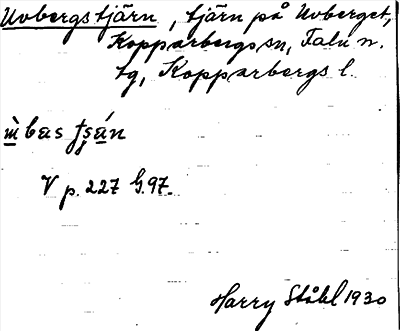 Uvbergstjärn, tjärn på Uvberget,
Kopparbergs sn, Falu n.
tg, Kopparbergs l.
V p. 227 G. 97.
Harry Ståhl 1930